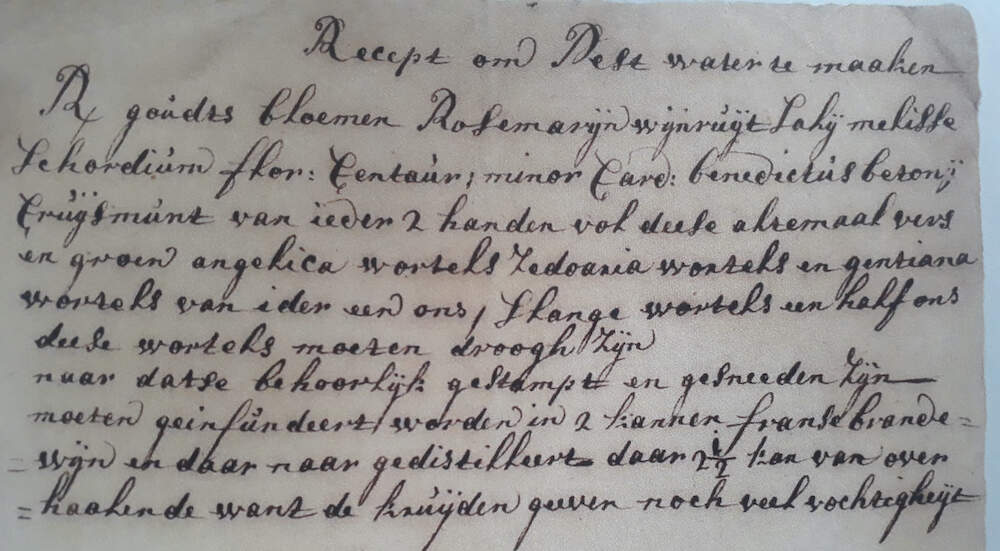 Recept om Pest water te maaken
Rx goudts bloemen Rosemarijn wijnruijt Salij melisse
Schordium flor: Centaur; minor Card: benedictus betonij
Cruijsmunt van ieder 2 handen vol deese altemaal vers
en groen angelica wortels Zedoaria wortels en gentiana
wortels van ider een ons, Slange wortels een half ons
deese wortels moeten droogh zijn
naar datse behoorlijk gestampt en gesneeden zijn
moeten geinfundeert worden in 2 kannen franse brande=
=wijn en daar naar gedistilleert daar 2 1/2 kan van over
=haalende want de kruijden geeven noch veel vochtigheijt